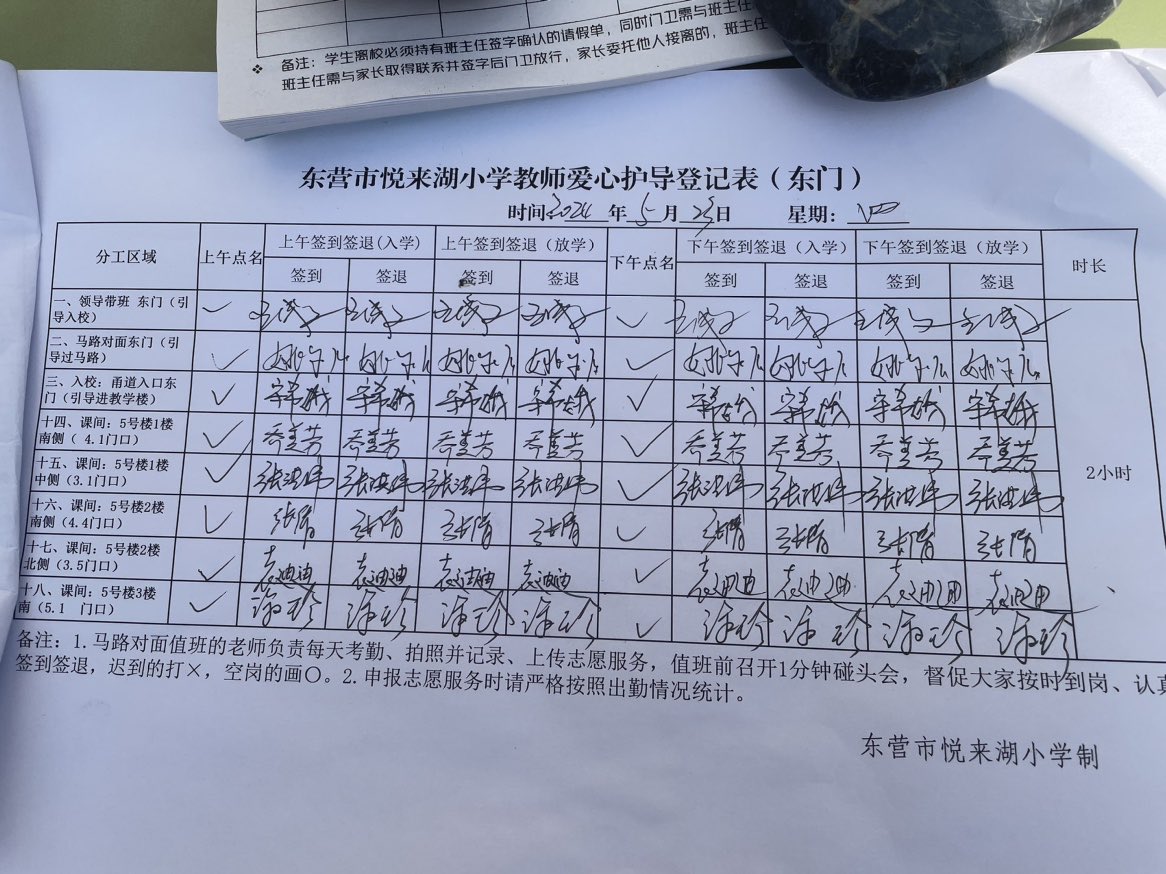 备注：学生离校必须持有班主任签字确认的请假单，同时门卫需与班主任
班主任需与家长取得联系并签字后门卫放行，家长委托他人接离的，班主任
东营市悦来湖小学教师爱心护导登记表（东门）
时间：2024年5月23日 星期：四
分工区域 上午点名 上午签到签退(入学) 上午签到签退（放学） 下午点名 下午签到签退（入学） 下午签到签退（放学） 时长
签到 签退 签到 签退 签到 签退 签到 签退
一、领导带班 东门（引
导入校） ✓ ✓
二、马路对面东门（引
导过马路） ✓ ✓
三、入校：甬道入口东
门（引导进教学楼） ✓ ✓
十四、课间：5号楼1楼
南侧（ 4.1门口） ✓ 乔美芳 乔美芳 乔美芳 乔美芳 ✓ 乔美芳 乔美芳 乔美芳 乔美芳
十五、课间：5号楼1楼
中侧（3.1门口） ✓ 张洪伟 张洪伟 张洪伟 张洪伟 ✓ 张洪伟 张洪伟 张洪伟 张洪伟
2小时
十六、课间：5号楼2楼
南侧（4.4门口） ✓ ✓
十七、课间：5号楼2楼
北侧（3.5门口） ✓ 袁迪迪 袁迪迪 袁迪迪 袁迪迪 ✓ 袁迪迪 袁迪迪 袁迪迪 袁迪迪
十八、课间：5号楼3楼
南（5.1 门口） ✓ 涂珍 涂珍 涂珍 涂珍 ✓ 涂珍 涂珍 涂珍 涂珍
备注：1.马路对面值班的老师负责每天考勤、拍照并记录、上传志愿服务，值班前召开1分钟碰头会，督促大家按时到岗、认真
签到签退，迟到的打×，空岗的画〇。2.申报志愿服务时请严格按照出勤情况统计。
东营市悦来湖小学制